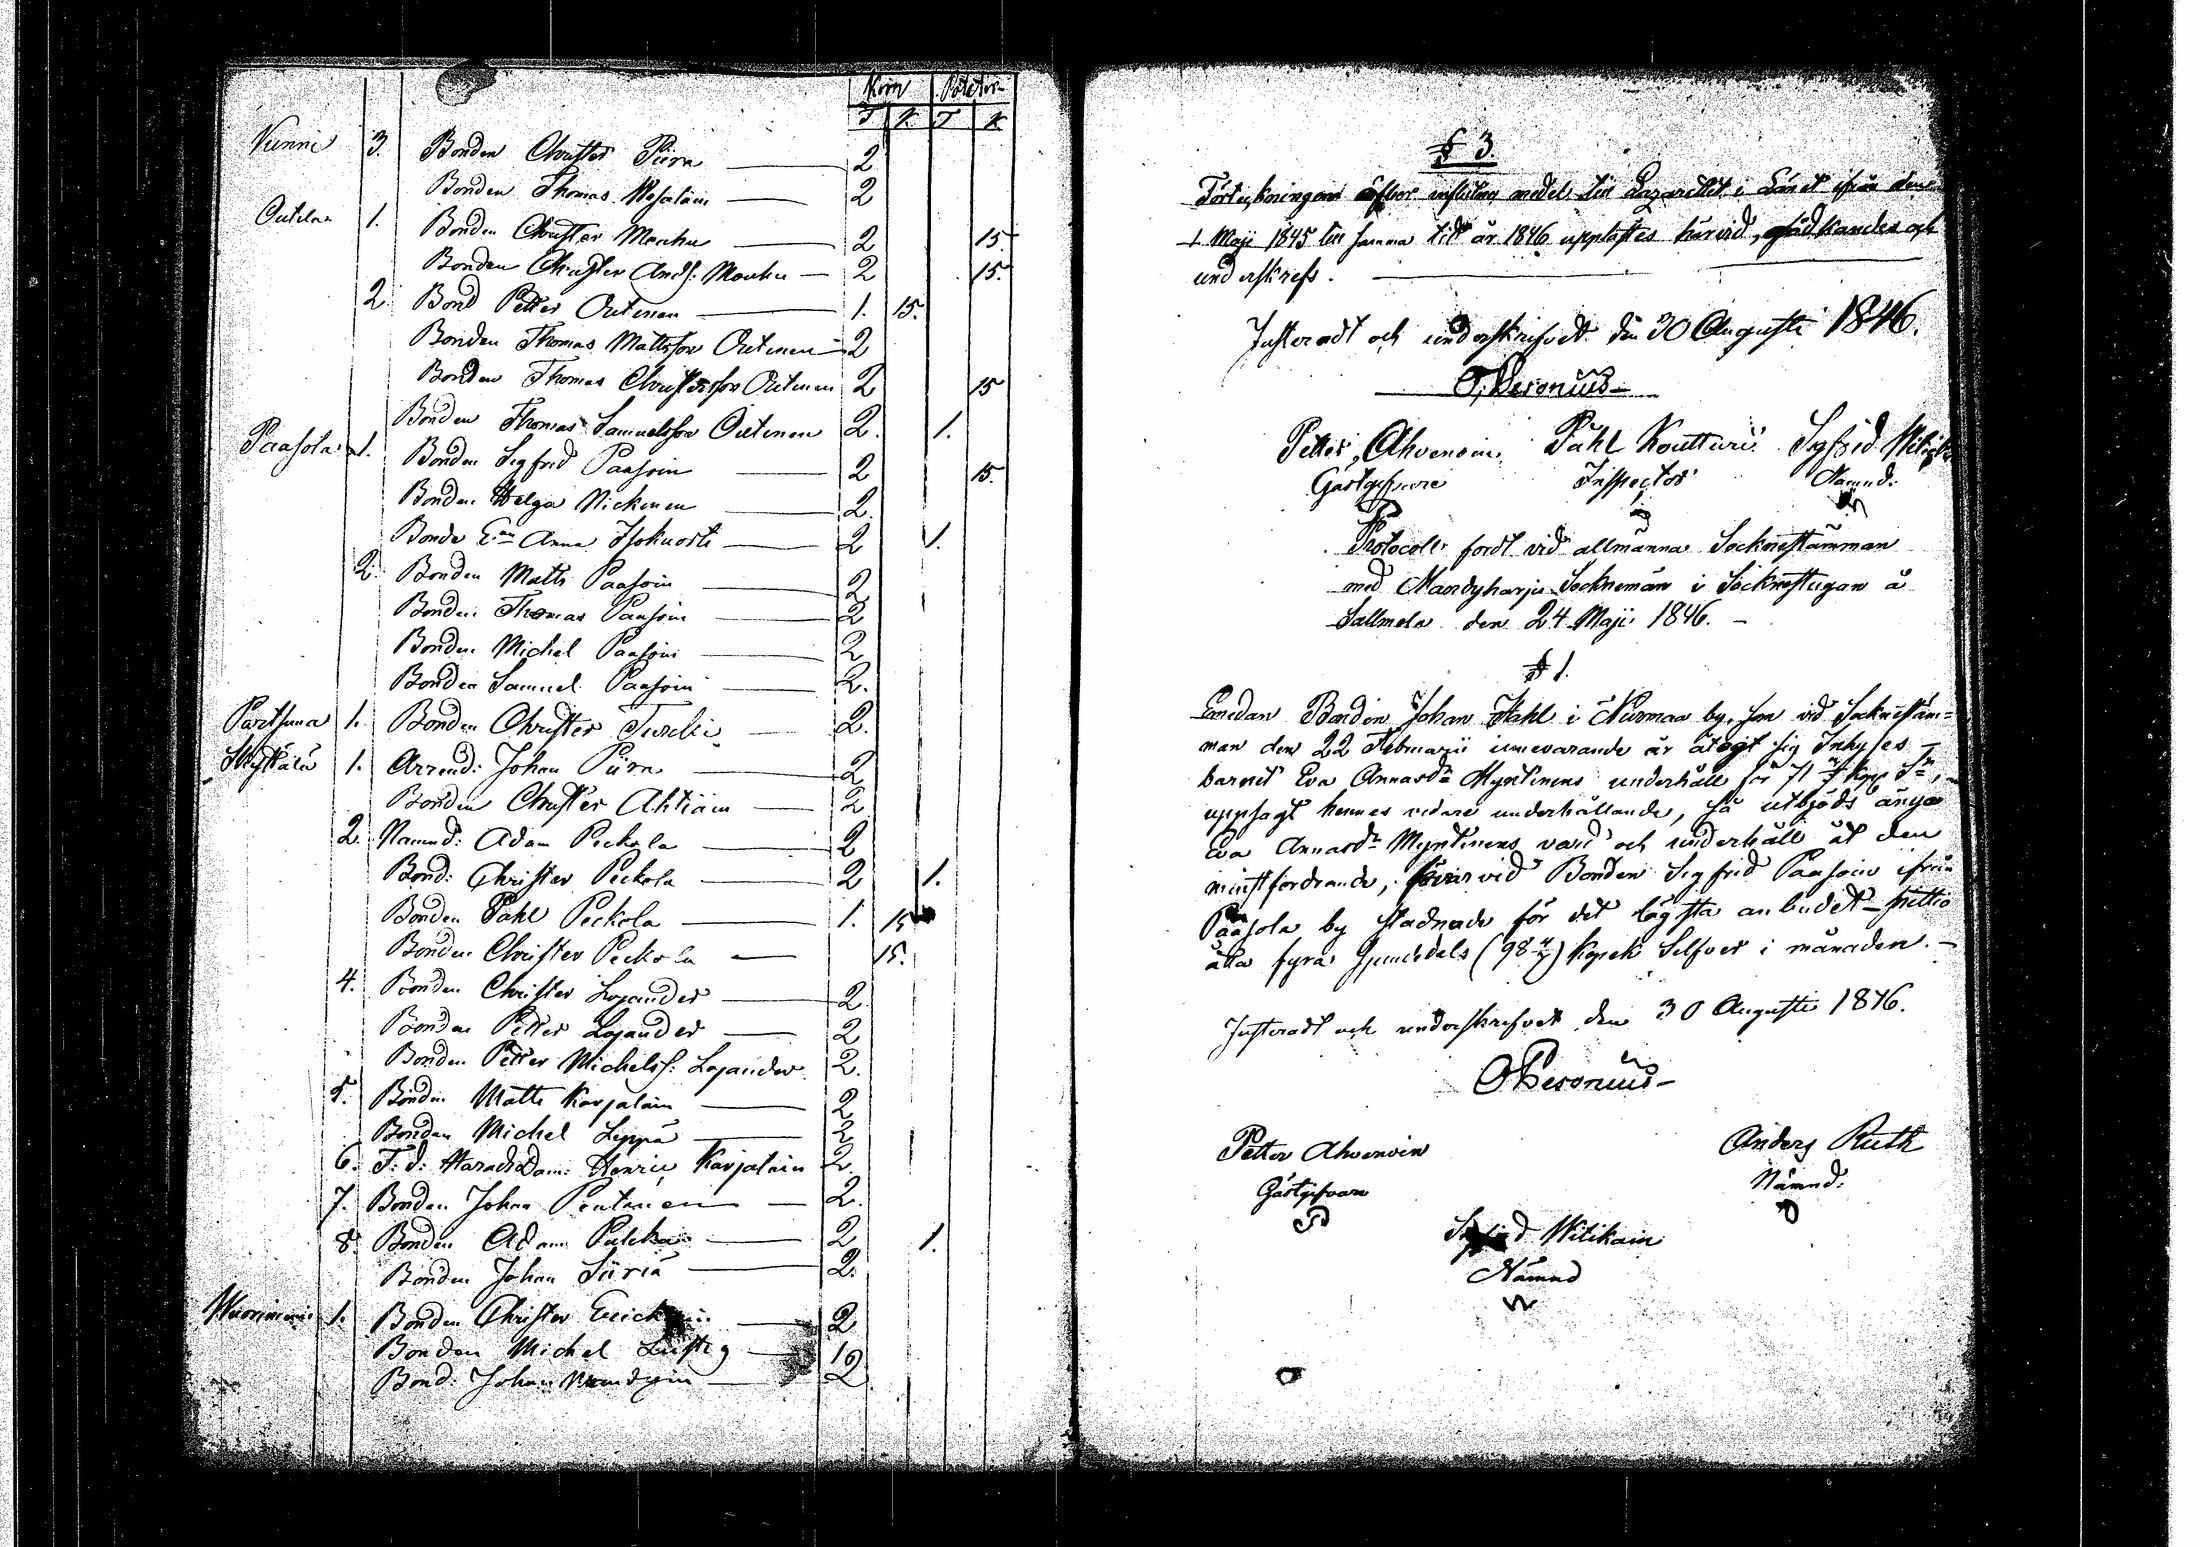 Korn Potater
T K T K
Nurmi 3. Bonden Christer Piira 2
Bonden Thomas Mesalain 2
Outila 1. Bonden Christer Mouhu 2 15
Bonden Christer Andss: Mouhu 2 15.
2. Bond Petter Outinen 1. 15.
Bonden Thomas Mattsson Outinen 2
Bonden Thomas Christersson Outinen 2 15
Bonden Thomas Samuelsson Outinen 2. 1.
Paasola 1. Bonden Sigfrid Paasoin 2 15.
Bonden Helga Nickinen 2.
Bonde E:an Anna Isokuorti 2 1.
2. Bonden Matts Paasoin 2
Bonden Thomas Paasoin 2
Bonden Michel Paasoin 2
Bonden Samuel Paasoin 2.
Partsima 1. Bonden Christer Turcki 2.
1. Arrend: Johan Piira 2
Bonden Christer Ahtiain 2
2. Nämnd: Adam Peckola 2
Bond: Christer Peckola 2 1.
Bonden Påhl Peckola 1. 15
Bonden Christer Peckola 15.
4. Bonden Christer Lojander 2
Bonden Petter Lojander 2
Bonden Petter Michelss: Lojander 2.
5. Bonden Matts Karjalain 2
Bonden Michel Leppä 2
6. F: d: Häradsdom: Henric Karjalain 2.
7. Bonden Johan Pentinen 2.
8. Bonden Adam Pulcka 2 1.
Bonden Johan Siiriä 2.
1. Bonden Christer 2
Bonden Michel Lustig 1
Bond: Johan 2
§ 3.
Förteckningen öfver influtna medel till Lazarettet i Länet ifrån den
1 Maji 1845 till samma tid år 1846 upplästes härvid, godkändes och
underskrefs.
Justeradt och underskrifvet den 30 Augusti 1846.
O. Heronius
Petter Ahvenain Påhl Koutturi Sigfrid Witikain
Gästgifvare Inspector Nämnd:
Protocoll fördt vid allmänna Sockenstämman
med Mändyharju Sockenmän i Sockenstugan å
Sallmela den 24 Maji 1846.
§ 1.
Emedan Bonden Johan Stahl i Nurmaa by, som vid Sockenstäm=
man den 22 Februarii innevarande år åtagit sig Inhyses
barnet Eva Annasdr Myntinens underhåll för 71 3/7 kop Sr,
uppsagt hennes vidare underhållande, så utbjöds ånyo
Eva Annasdr Myntinens vård och underhåll åt den
minstfordrande, hvarvid Bonden Sigfrid Paasoin ifrån
Paasola by stadnade för det lägsta anbudet nittio
åtta fyra sjundedels (98 4/7) kopek Silfver i månaden.
Justeradt och underskrifvet den 30 Augusti 1846.
O Heronius
Petter Ahvenain Anders Ruth
Gästgifvare Nämnd:
Sigfrid Witikain
Nämnd